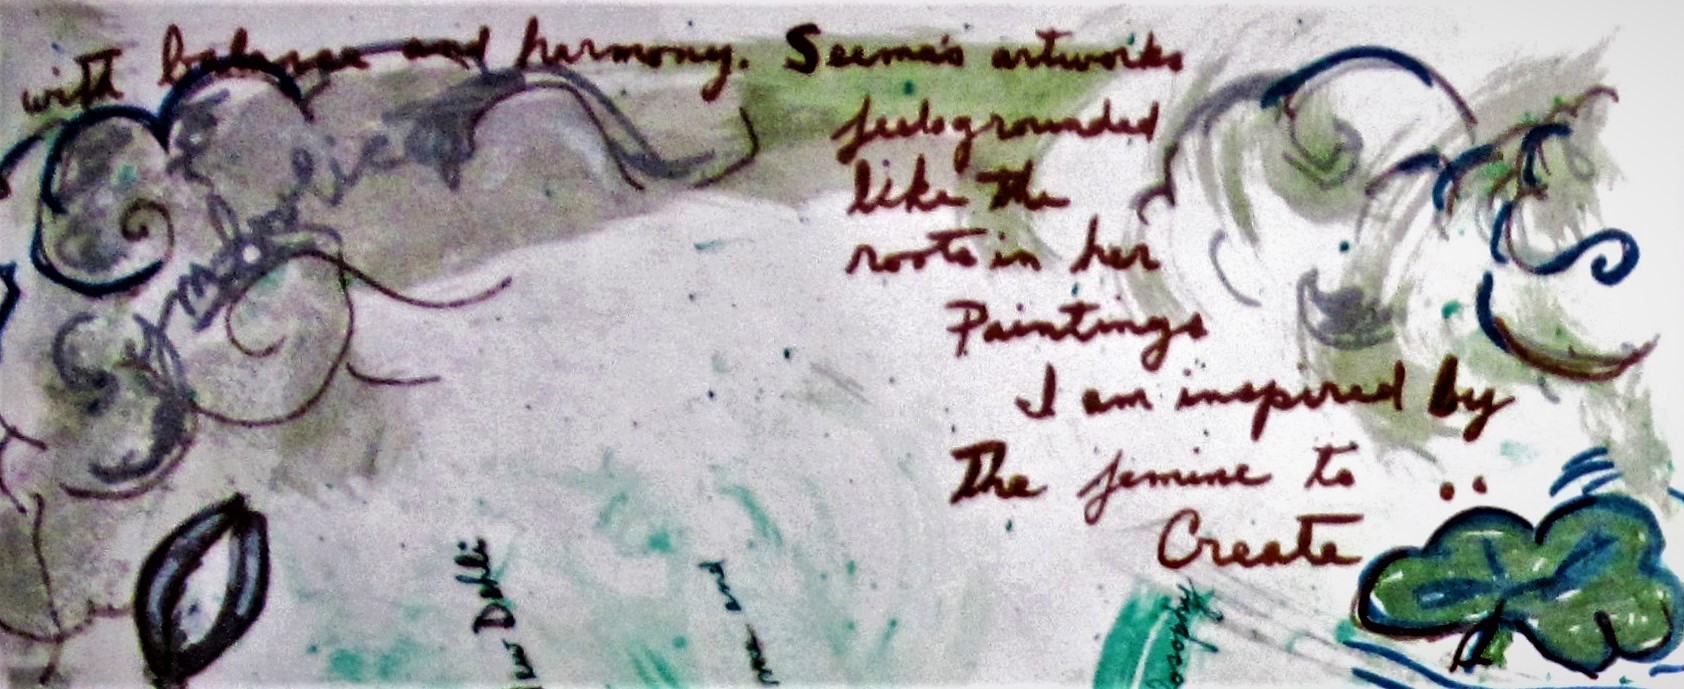 with balance and harmony. Seema's artworks
feels grounded
like the
roots in her
Paintings
I am inspired by
The femine to
Create
Symbolic
w Dehli
and
losophy